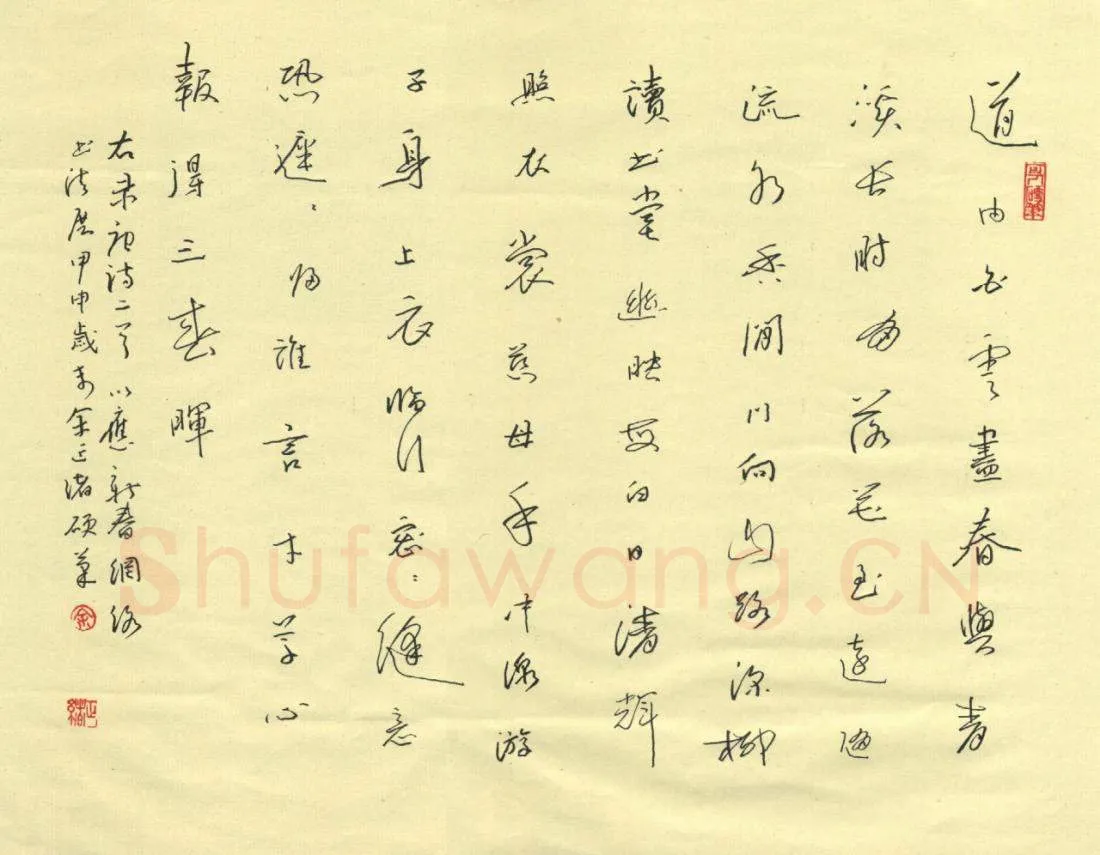 道由白雲盡春與青
溪长时有落花至遠随
流水香閒门向山路深柳
讀书堂幽映每白日清輝
照衣裳慈母手中線游
子身上衣临行密〻縫意
恐遲〻归誰言寸草心
報得三春暉
右录唐诗二首以應新春網络
书法展甲申歲末余正渚硬笔
Shufawang.CN